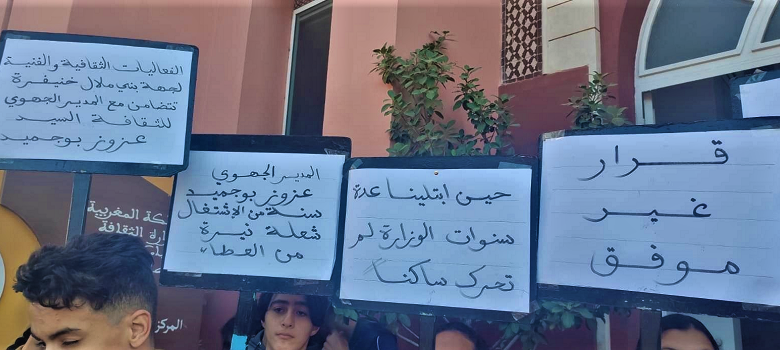 الفعاليات الثقافية والفنية
لجهة بني ملال خنيفرة
تتضامن مع المدير الجهوي
للثقافة السيد
عزوز بوجميد
المدير الجهوي
عزوز بوجميد
سنة من الاشتغال
شعلة نيرة
من العطاء
حين ابتلينا عدة
سنوات الوزارة لم
تحرك ساكنا
قرار
غير
موفق
كة المغربية
رة الثقافة
المركز